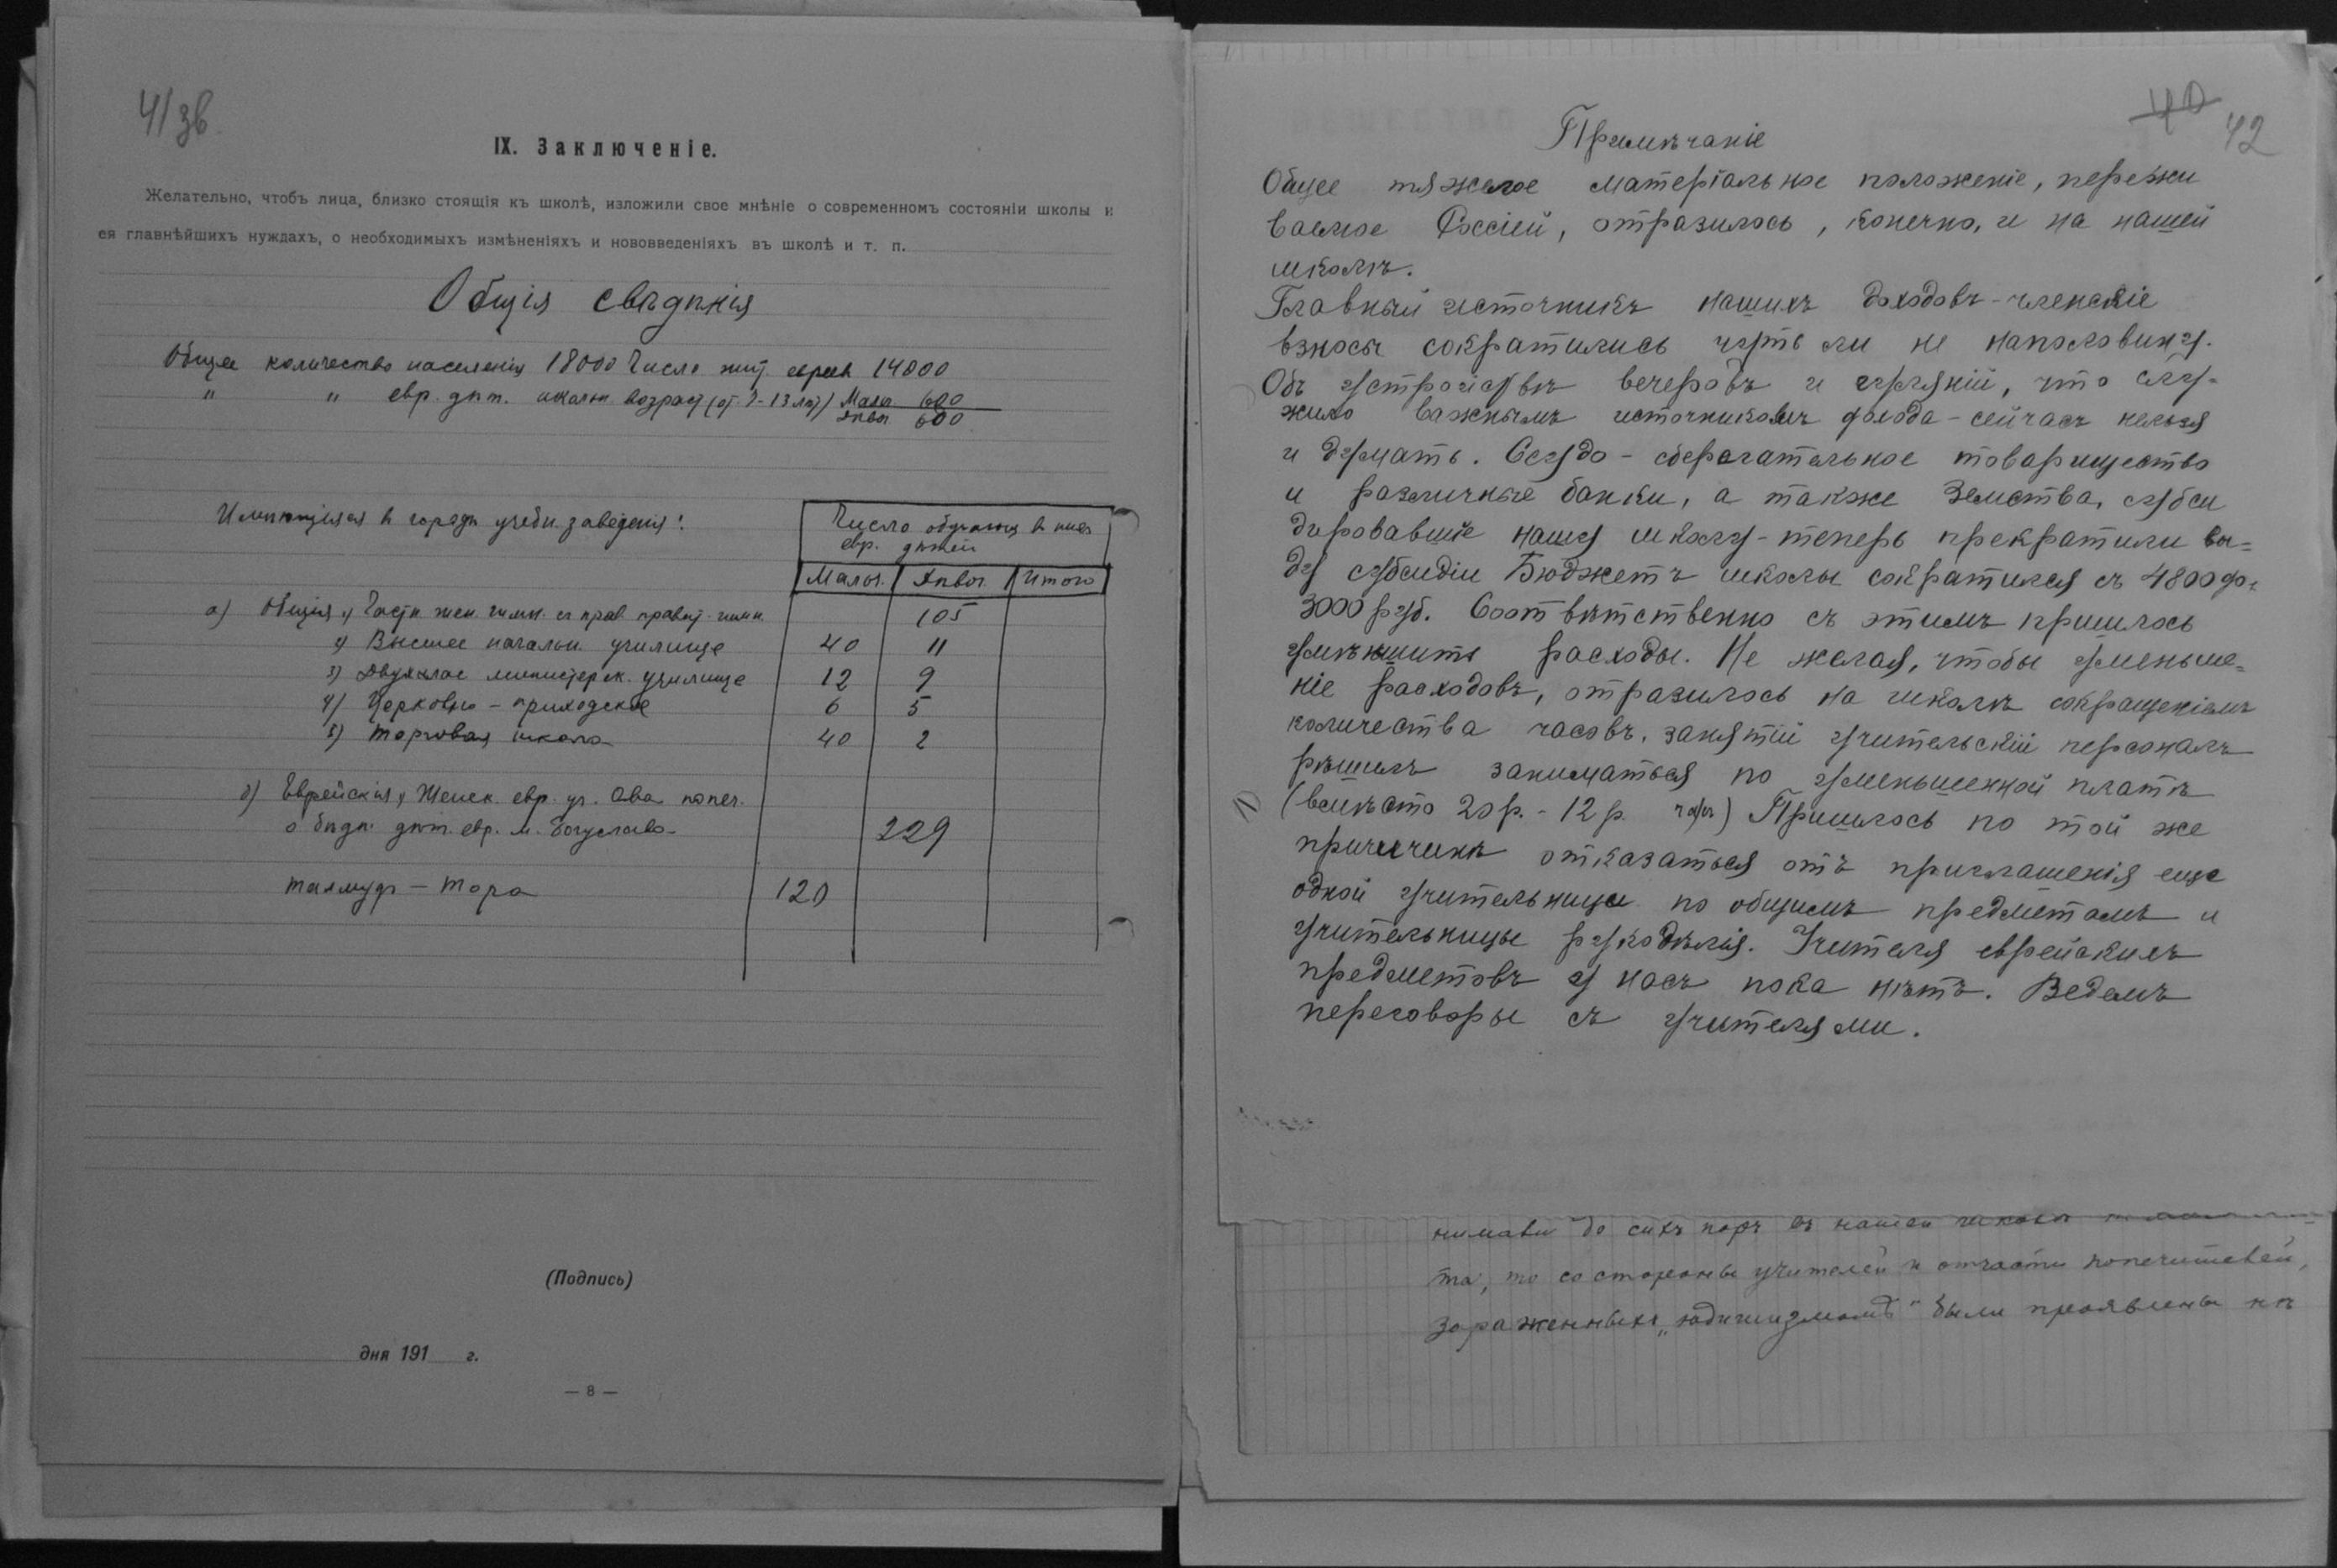 41 зв.
IX. Заключеніе.
Желательно, чтобъ лица, близко стоящія къ школѣ, изложили свое мнѣніе о современномъ состояніи школы и
ея главнѣйшихъ нуждахъ, о необходимыхъ измѣненіяхъ и нововведеніяхъ въ школѣ и т. п.
Общія свѣдѣнія
Общее количество населенія 18000 Число жит. евреев 14000
" " евр. дѣт. школьн. возраст (от 7-13 лѣт) Мальч. 600
Дѣвоч. 600
Имѣющіяся в городѣ учебн. заведенія:
Число обучающ. в них
евр. дѣтей
Мальч. Дѣвоч. Итого
а) Общія 1) Частн. жен. гимн. съ прав. правит. гимн. 105
2) Высшее начальн. училище 40 11
3) Двуклас. министерск. училище 12 9
4) Церковно-приходское 6 5
5) Торговая школа 40 2
б) Еврейскія 1) Женск. евр. уч. О-ва попеч.
о бѣдн. дѣт. евр. м. Богуслава 229
Талмудъ-Тора 120
(Подпись)
дня 191 г.
— 8 —
40
42
Примѣчаніе
Общее тяжелое матеріальное положеніе, пережи
ваемое Россіей, отразилось, конечно, и на нашей
школѣ.
Главный источникъ нашихъ доходовъ-членскіе
взносы сократились чуть ли не наполовину.
Объ устройствѣ вечеровъ и гуляній, что слу-
жило важнымъ источникомъ дохода-сейчасъ нельзя
и думать. Ссудо-сберегательное товарищество
и различные банки, а также Земства, субси
дировавшіе нашу школу-теперь прекратили вы=
ду субсидіи Бюджетъ школы сократился съ 4800 до=
3000 руб. Соотвѣтственно съ этимъ пришлось
умѣньшить расходы. Не желая, чтобы уменьше=
ніе расходовъ, отразилось на школѣ сокращеніемъ
количества часовъ, занятій учительскій персоналъ
рѣшилъ заниматься по уменьшенной платѣ
1) (вмѣсто 20 р. - 12 р. часъ) Пришлось по той же
причинѣ отказаться отъ приглашенія еще
одной учительницы по общимъ предметамъ и
учительницы рукодѣлія. Учителя еврейскихъ
предметовъ у насъ пока нѣтъ. Ведемъ
переговоры съ учителями.
нимави до сихъ поръ въ нашей школѣ
та, то со стороны учителей и отчасти попечителей,
зараженныхъ „юдишизмомъ" были проявлены нѣ